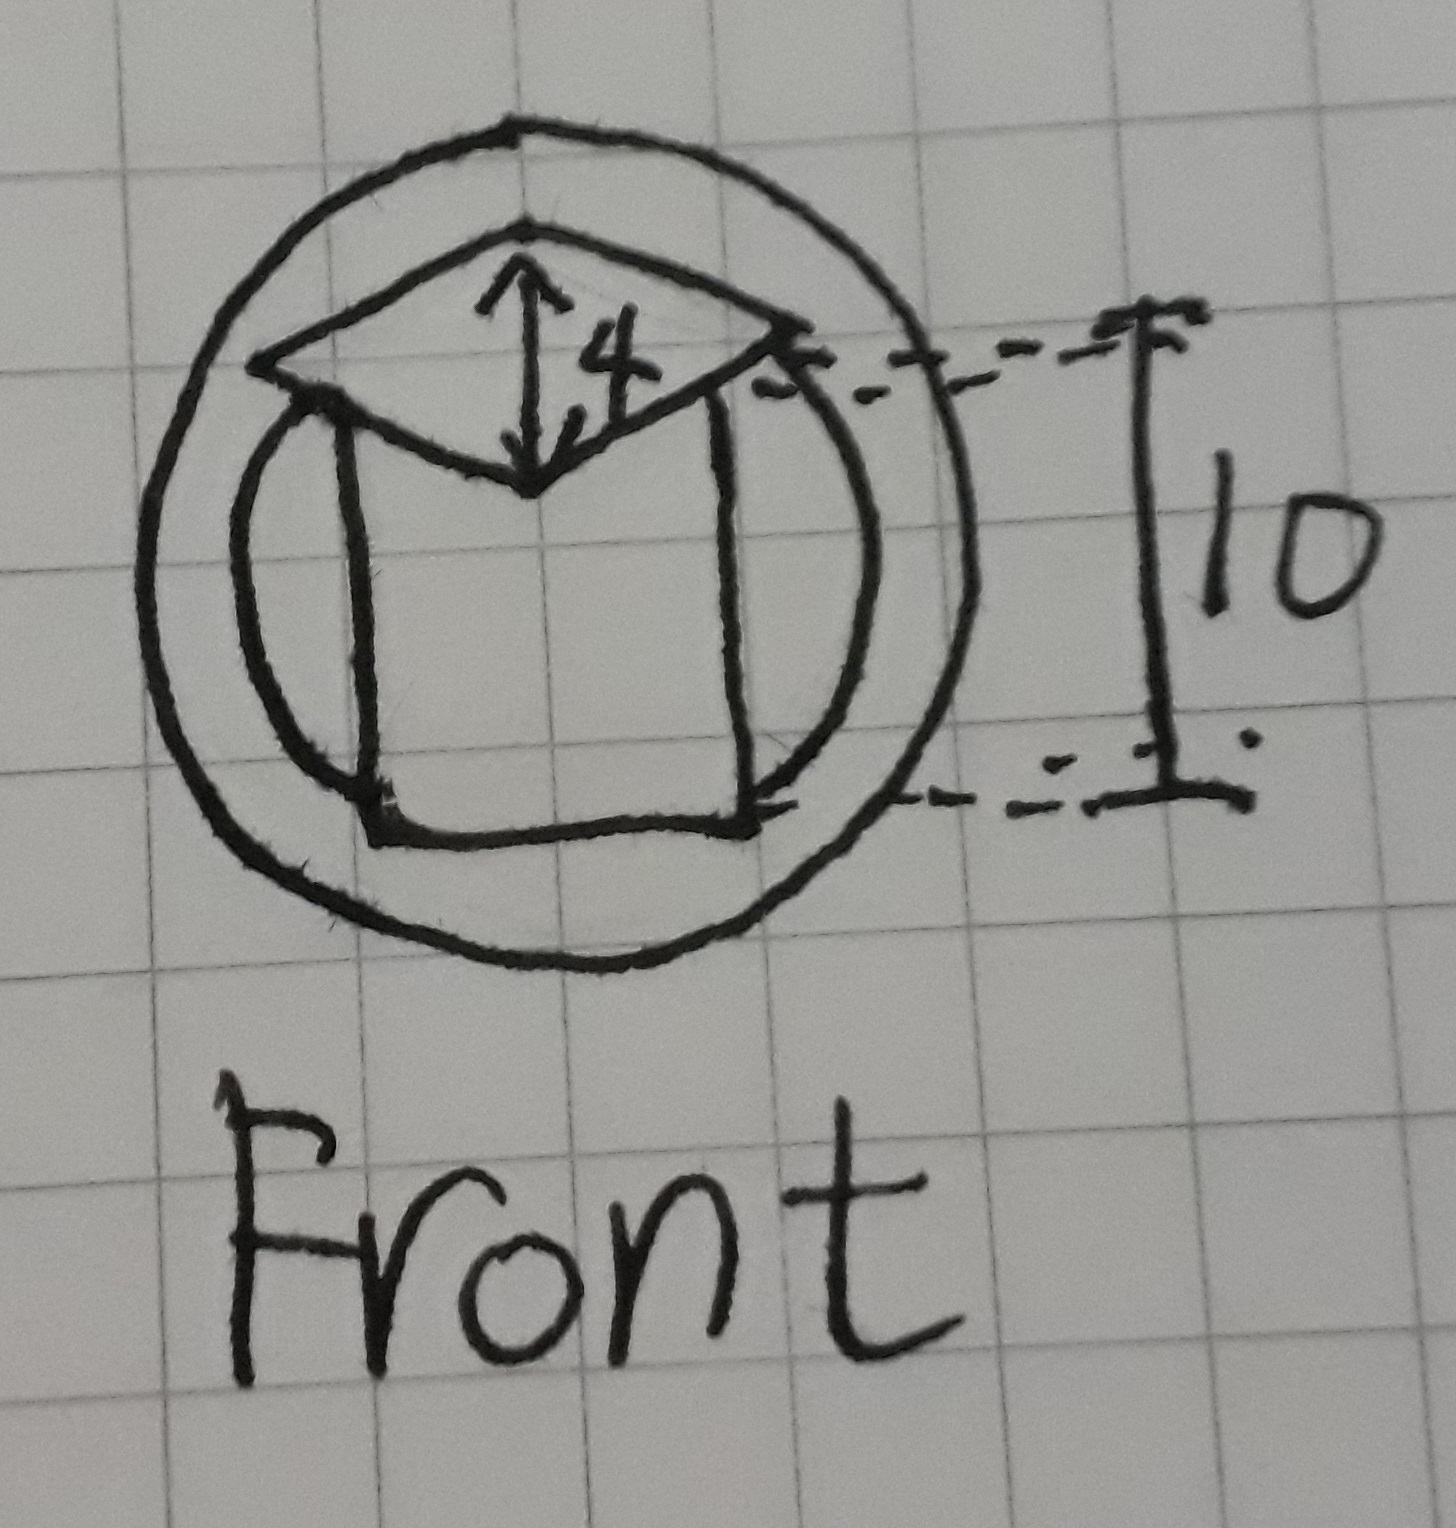 4
10
Front